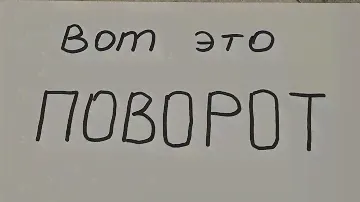 Вот это
ПОВОРОТ